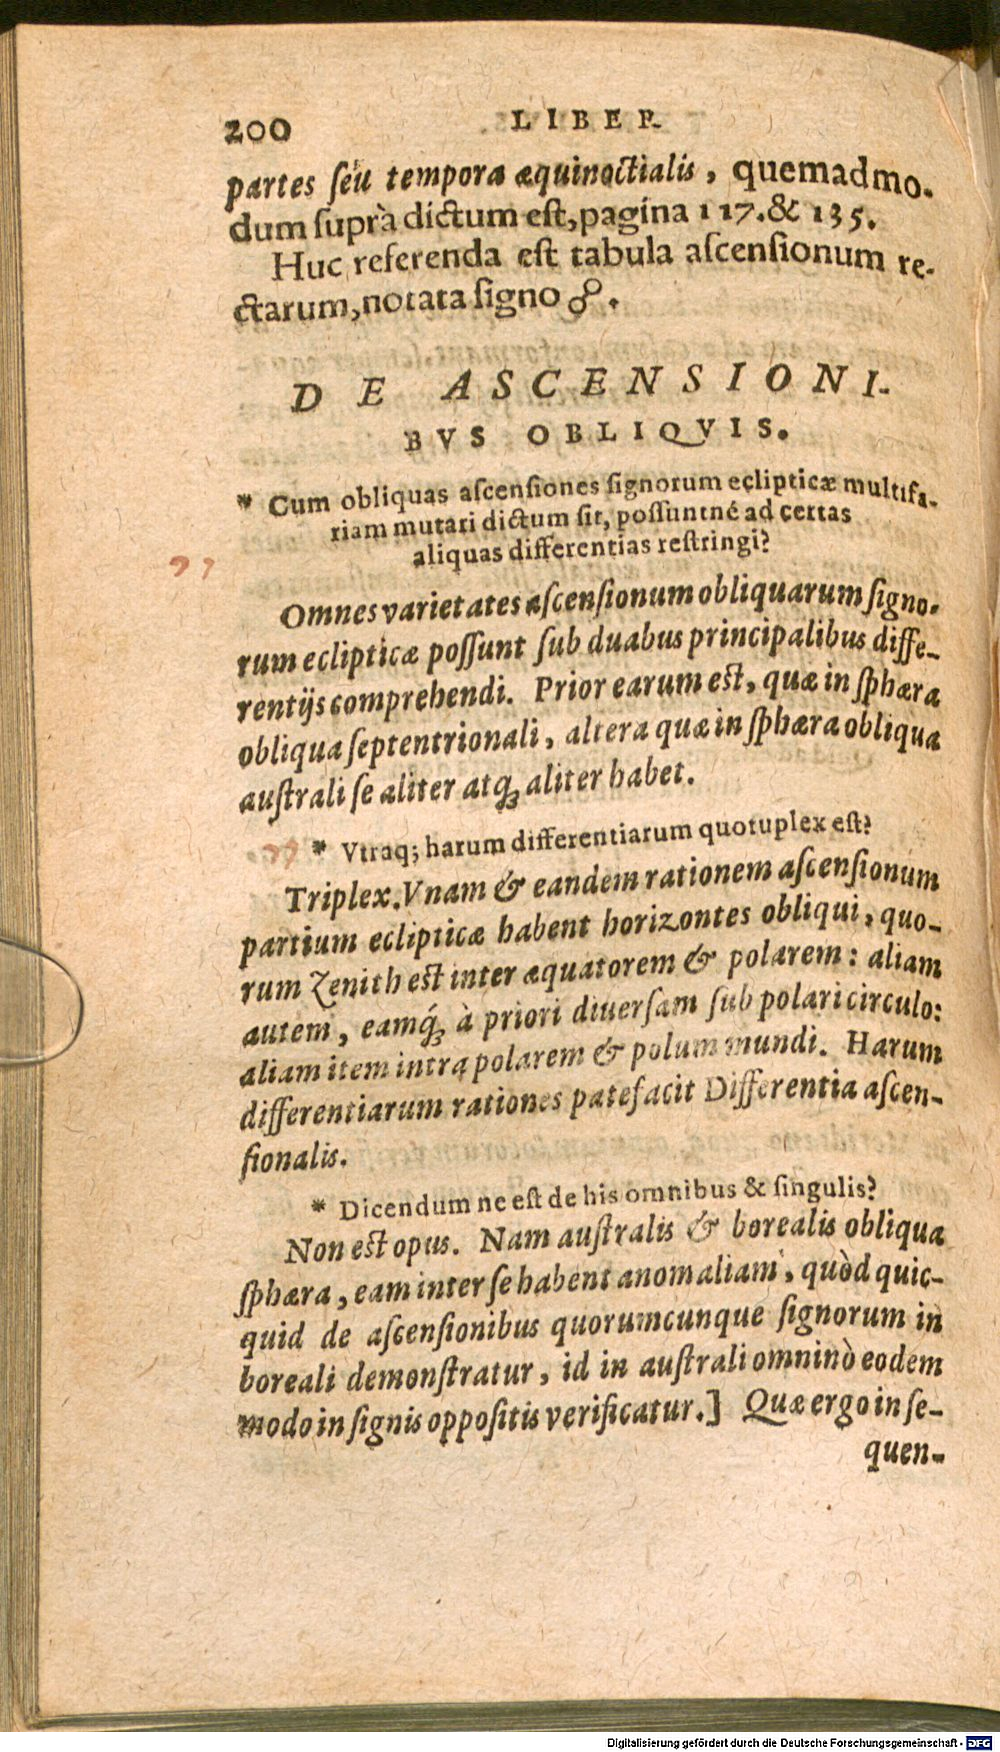 200 LIBER
partes ſeu tempora æquinoctialis, quemadmo-
dum ſuprà dictum eſt, pagina 117. & 135.
Huc referenda eſt tabula aſcenſionum re-
ctarum, notata ſigno ☍.
DE ASCENSIONI-
BVS OBLIQVIS.
* Cum obliquas aſcenſiones ſignorum eclipticæ multifa-
riam mutari dictum ſit, poſſuntné ad certas
aliquas differentias reſtringi?
Omnes varietates aſcenſionum obliquarum ſigno-
rum eclipticæ poſſunt ſub duabus principalibus diffe-
rentijs comprehendi. Prior earum eſt, quæ in ſphæra
obliqua ſeptentrionali, altera quæ in ſphæra obliqua
auſtrali ſe aliter atq́ꝫ aliter habet.
* Vtraq; harum differentiarum quotuplex eſt?
Triplex. Vnam & eandem rationem aſcenſionum
partium eclipticæ habent horizontes obliqui, quo-
rum Zenith eſt inter æquatorem & polarem: aliam
autem, eamq́ꝫ à priori diuerſam ſub polari circulo:
aliam item intra polarem & polum mundi. Harum
differentiarum rationes patefacit Differentia aſcen-
ſionalis.
* Dicendum ne eſt de his omnibus & ſingulis?
Non eſt opus. Nam auſtralis & borealis obliqua
ſphæra, eam inter ſe habent anomaliam, quòd quic-
quid de aſcenſionibus quorumcunque ſignorum in
boreali demonſtratur, id in auſtrali omninò eodem
modo in ſignis oppoſitis verificatur.] Quæ ergo in ſe-
quen-
Digitalisierung gefördert durch die Deutsche Forschungsgemeinschaft - DFG